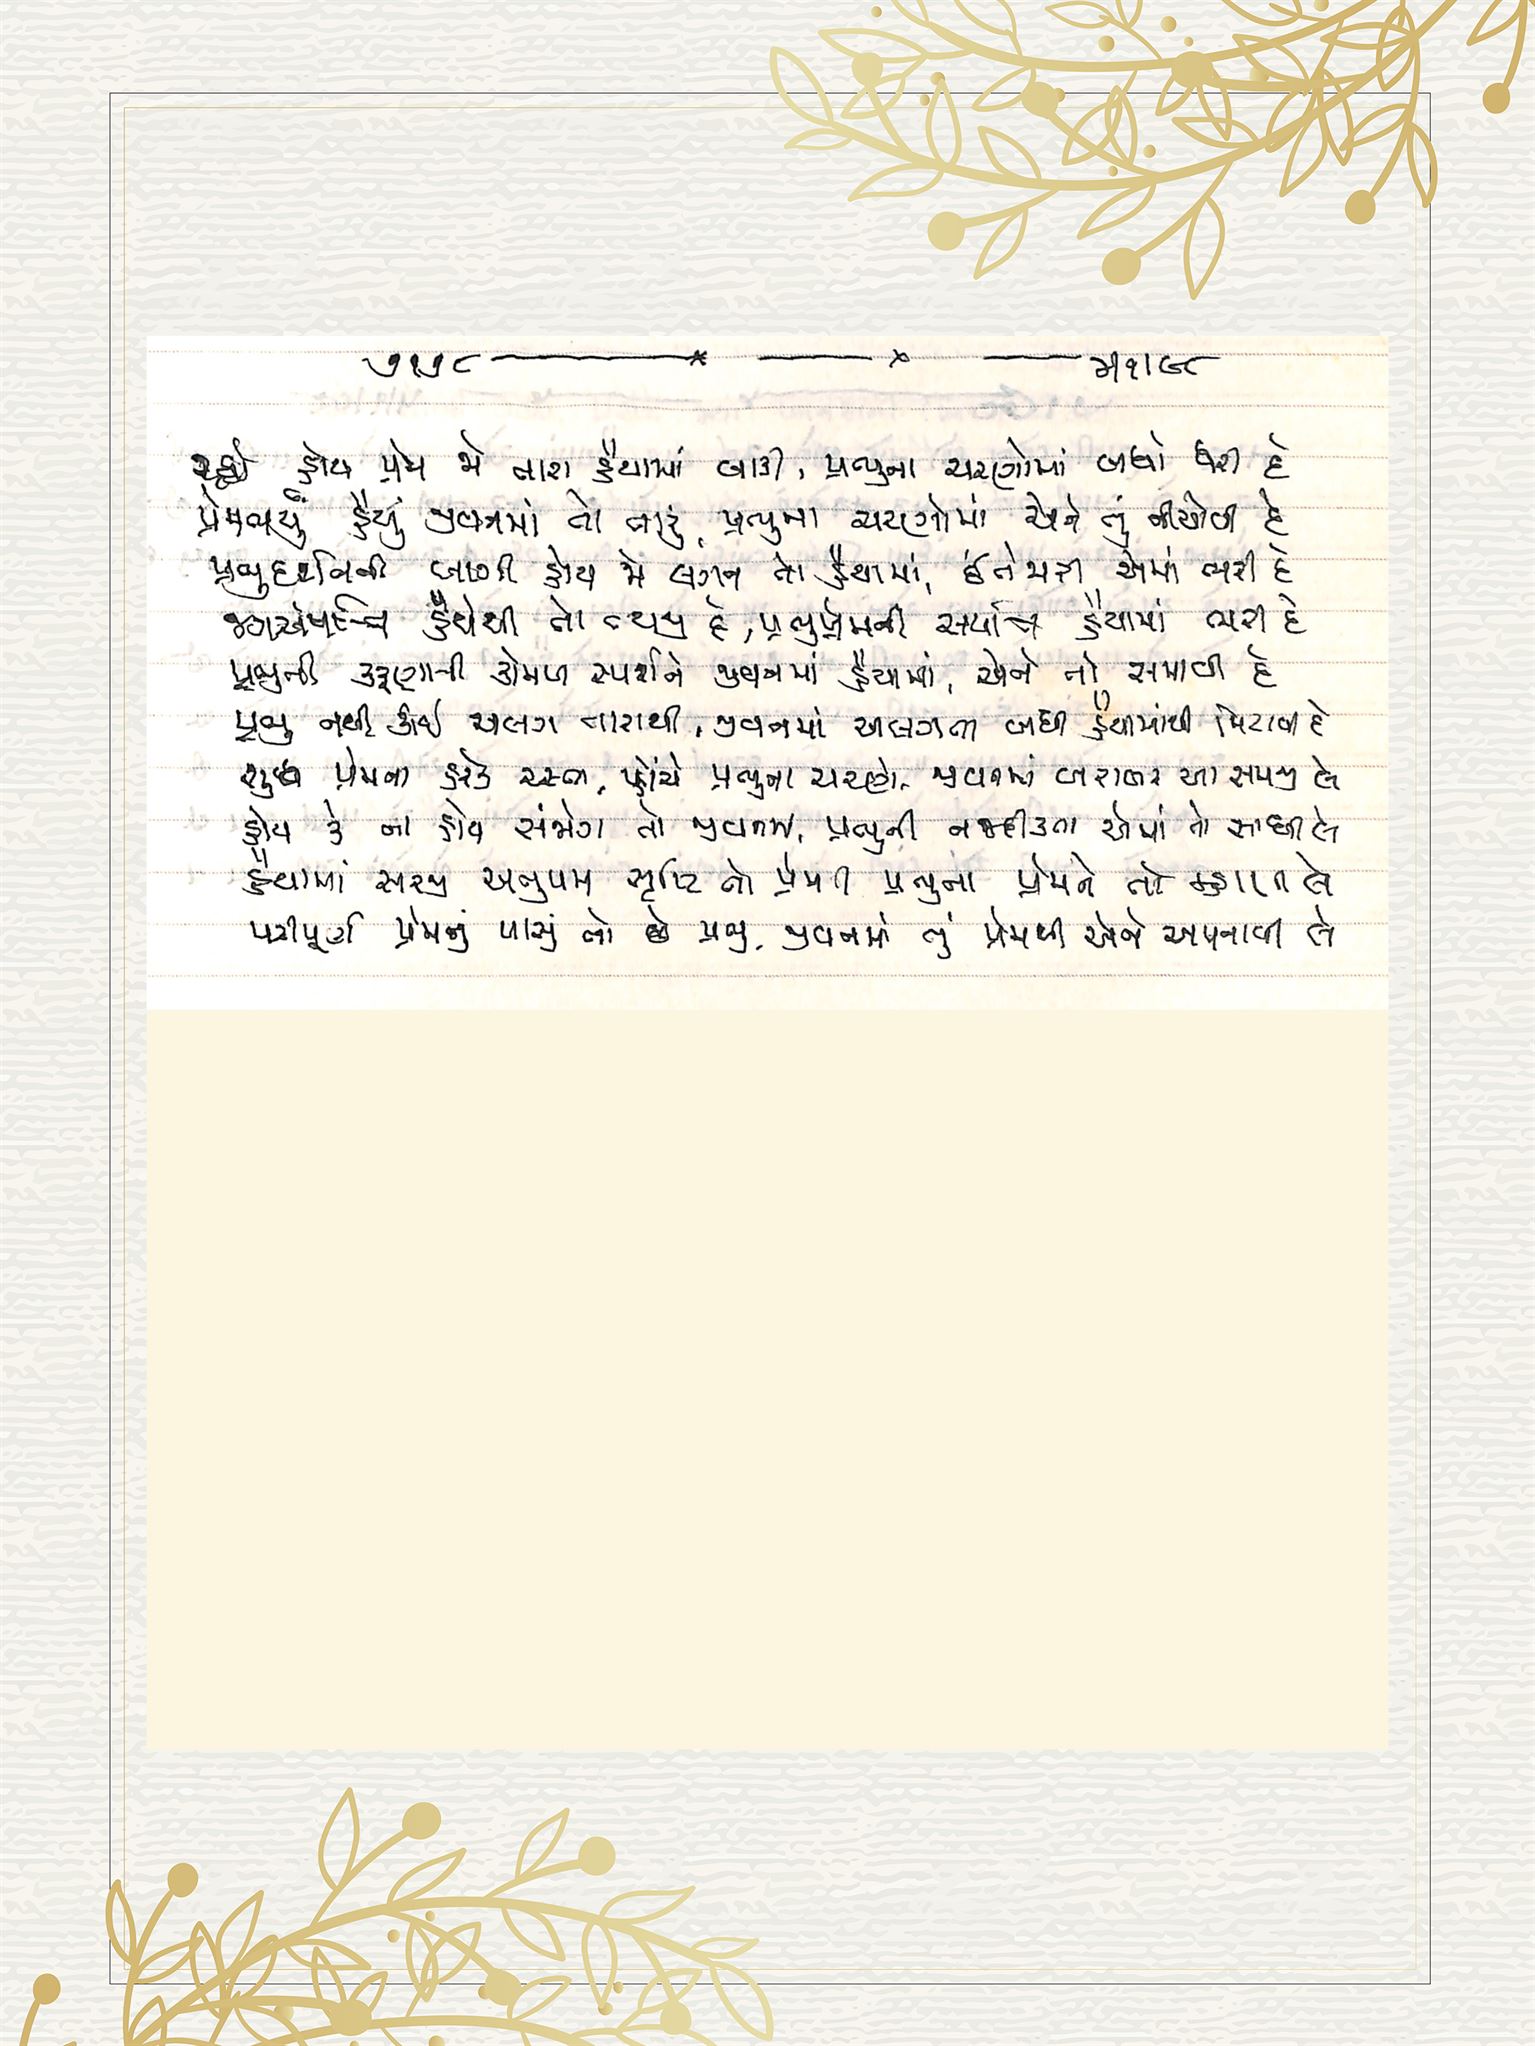 ૭૧૫૮ ————* —— x ——
રહ્યો હોય પ્રેમ જો તારા હૈયામાં બાકી, પ્રભુના ચરણોમાં બધો ધરી દે
પ્રેમભર્યું હૈયું જીવનમાં તો તારું, પ્રભુના ચરણોમાં એને તું નીચોવી દે
પ્રભુદર્શનની જાગી હોય જો લગન તો હૈયામાં, ઇંતેજારી એમાં ભરી દે
હૈયેથી તો ત્યજી દે, પ્રભુપ્રેમની હૈયામાં ભરી દે
પ્રભુની કરુણાની કોમળ સ્પર્શને જીવનમાં હૈયામાં, એને તો સમાવી દે
પ્રભુ નથી કાંઈ અલગ તારાથી, જીવનમાં અલગતા બધી હૈયામાંથી મિટાવી દે
શુદ્ધ પ્રેમના હરેક રસ્તા, પ્હોંચે પ્રભુના ચરણે, જીવનમાં બરાબર આ સમજી લે
હોય કે ના હોય સંજોગ તો જીવનમાં, પ્રભુની નજદીકતા એમાં તો સાધી લે
હૈયામાં સરજી અનુપમ સૃષ્ટિ તો પ્રેમની પ્રભુના પ્રેમને તો લે
પરીપૂર્ણ પ્રેમનું પાસું તો છે પ્રભુ, જીવનમાં તું પ્રેમથી એને અપનાવી લે